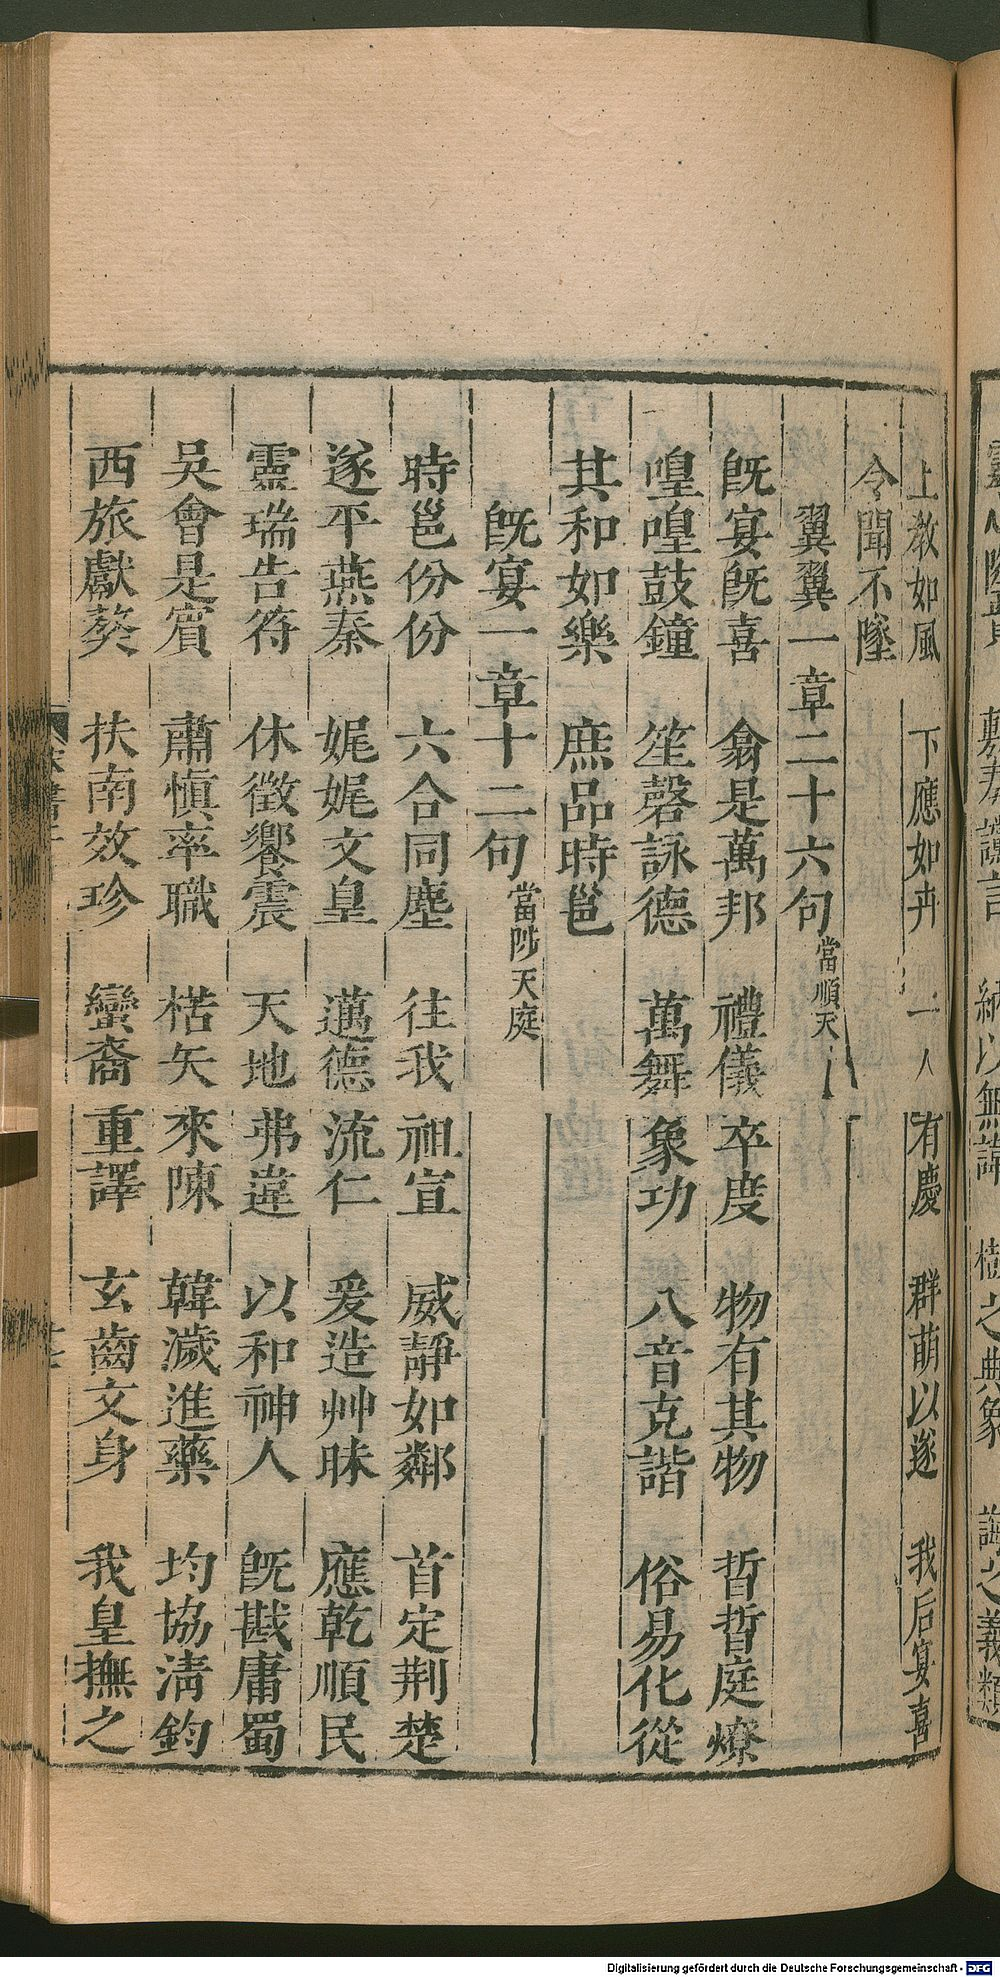 上教如風　下應如卉　一人有慶　群萌以遂　我后宴喜
令聞不墜
翼翼一章二十六句當順天
既宴既喜　翕是萬邦　禮儀卒度　物有其物　晢晢庭燎
喤喤鼓鐘　笙磬詠德　萬舞象功　八音克諧　俗易化從
其和如樂　庶品時邕
既宴一章十二句當陟天庭
時邕份份　六合同塵　往我祖宣　威靜如鄰　首定荆楚
遂平燕秦　娓娓文皇　邁德流仁　爰造艸昧　應乾順民
靈瑞告符　休徵饗震　天地弗違　以和神人　既戡庸蜀
吳會是賓　肅慎率職　楛矢來陳　韓濊進藥　均協清鈞
西旅獻獒　扶南效珍　蠻裔重譯　玄齒文身　我皇撫之
Digitalisierung gefördert durch die Deutsche Forschungsgemeinschaft - DFG